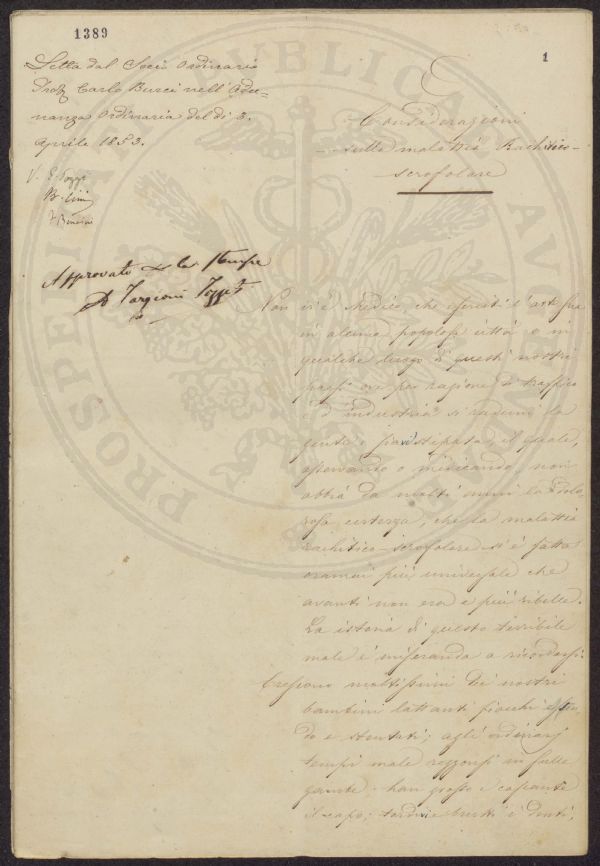 1389
1
Letta dal Socio Ordinario
Prof. Carlo Burci nell'Adu-
nanza Ordinaria del dì 3.
Aprile 1853.
Approvato per la stampa
A Targioni Tozzetti
Considerazioni
sulla malattia Rachitico-
scrofolare
Non vi è Medico, che eserciti l'arte sua
in alcuna popolosa città o in
qualche luogo di questi nostri
paesi ove per ragione di traffico
e d'industria si raduni la
gente e stipata, il quale,
osservando o medicando, non
abbia da molti anni la dolo
rosa certezza, che la malattia
rachitico-scrofolare si è fatta
oramai più universale che
avanti non era e più ribelle.
La istoria di questo terribile
male è miseranda a ricordarsi.
Crescono moltissimi dei nostri
bambini lattanti fiacchi
e stentati; agli ordinarj
tempi male reggonsi in sulle
gambe; han grosso e cascante
il capo; tardi e brutti i denti;
PROSPERITATI PUBLICAE AUGENDAE